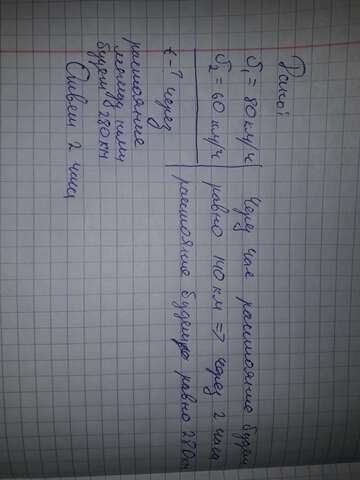 Дано:
V₁ = 80 км/ч
V₂ = 60 км/ч
t - ? через
расстояние
между ними
будет 280 км
Через час расстояние будет
равно 140 км => через 2 часа
расстояние будет равно 280км
Ответ 2 часа